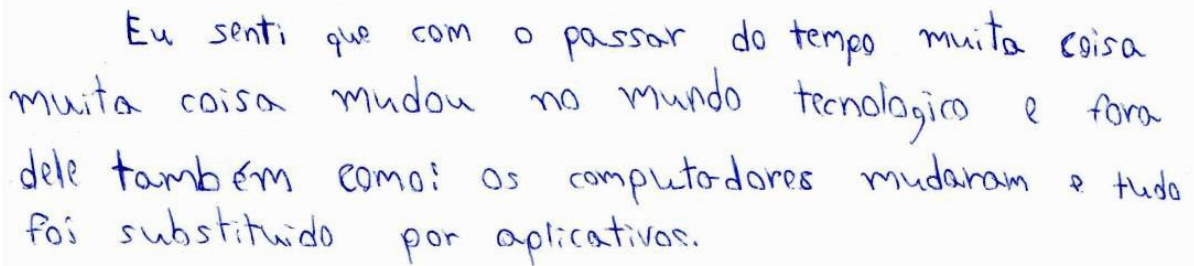 Eu senti que com o passar do tempo muita coisa
muita coisa mudou no mundo tecnologico e fora
dele também como: os computadores mudaram e tudo
foi substituido por aplicativos.